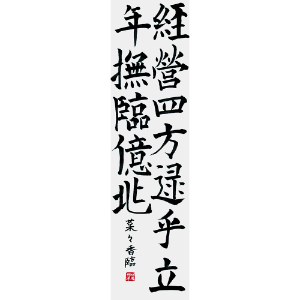 經營四方逯乎立
年撫臨億兆
菜々香臨